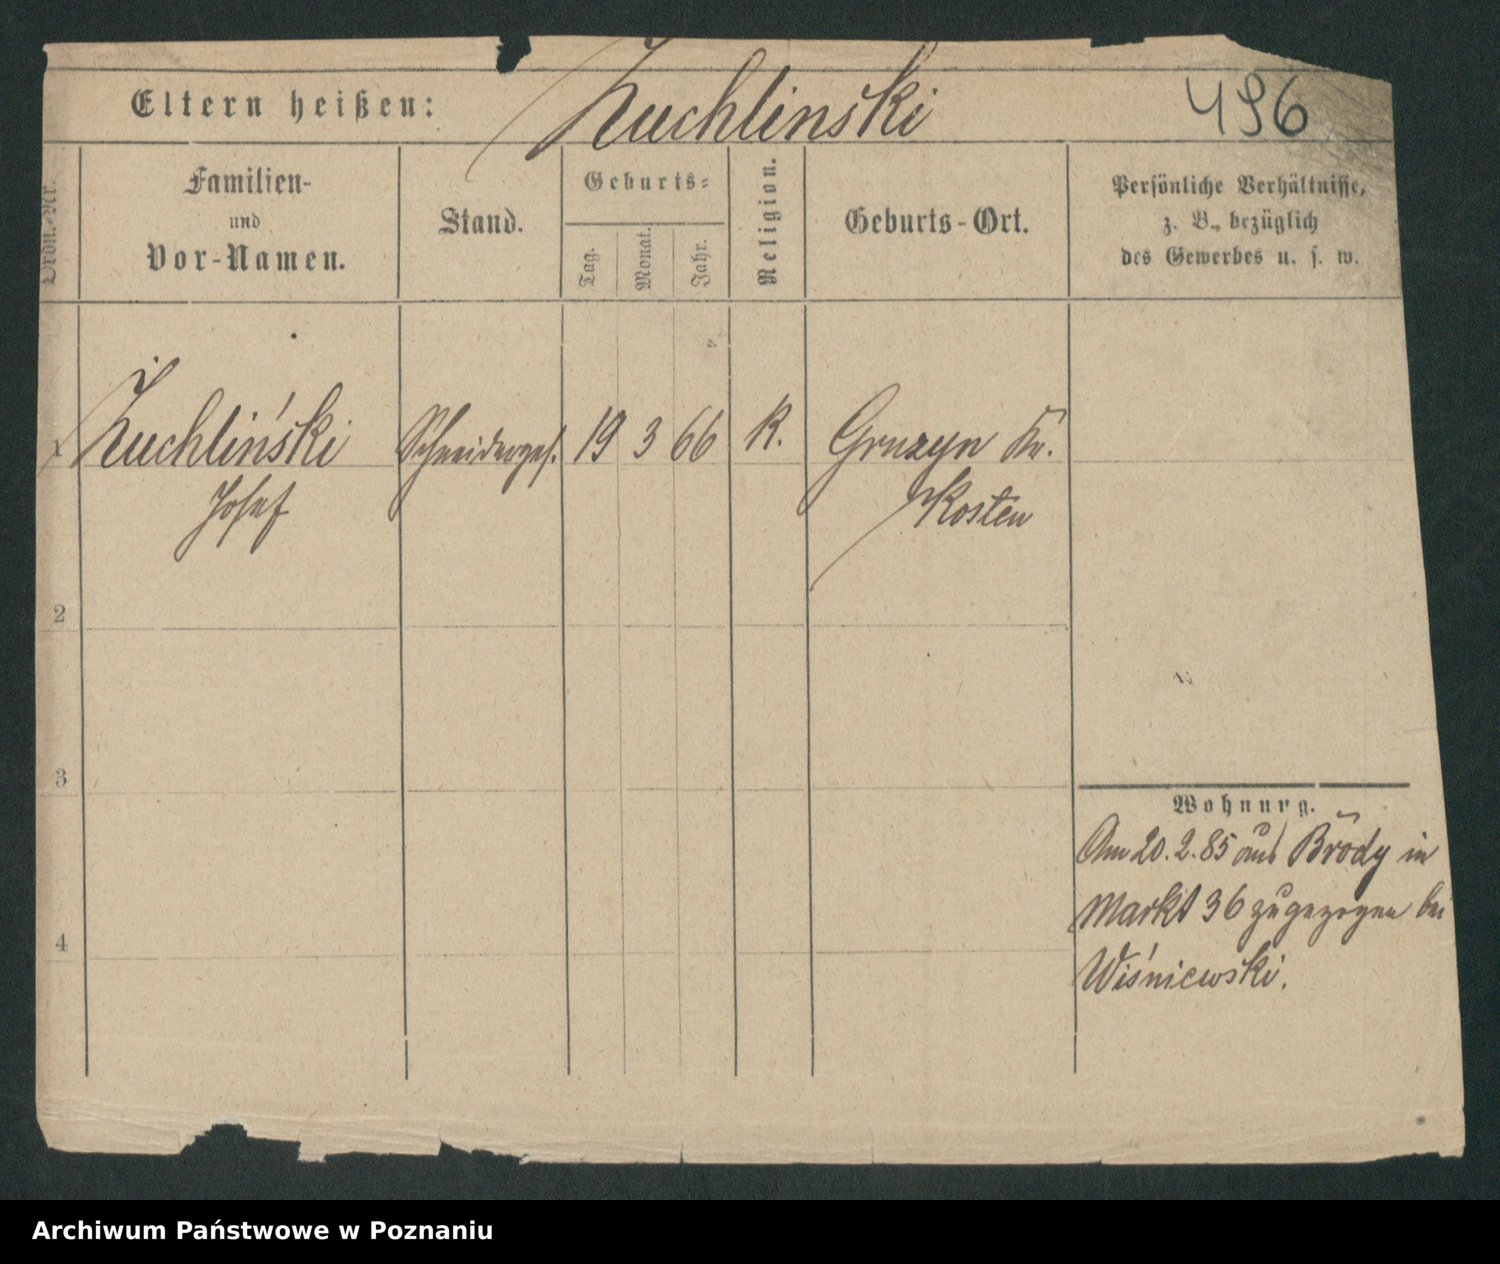 Eltern heißen: Żuchlinski 496
Ordn.-Nr.
Familien-
und
Vor-Namen.
Stand.
Geburts-
Tag.
Monat.
Jahr.
Religion.
Geburts-Ort.
Persönliche Verhältnisse,
z. B., bezüglich
des Gewerbes u. s. w.
1 Żuchliński Schneiderges. 19 3 66 K. Gruzyn Kr.
Josef Kosten
2
3
4
Wohnung.
Am 20.2.85 aus Brody in
Markt 36 zugezogen bei
Wiśniewski.
Archiwum Państwowe w Poznaniu